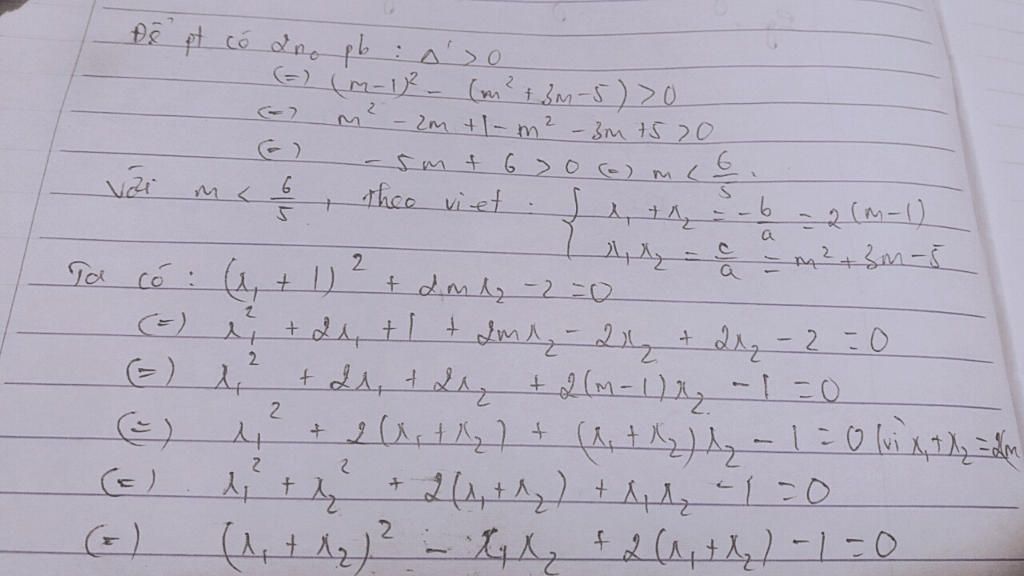 Để pt có 2no pb : Δ' > 0
(=) (m-1)² - (m² + 3m - 5) > 0
(=) m² - 2m + 1 - m² - 3m + 5 > 0
(=) - 5m + 6 > 0 (=) m < 6/5.
Với m < 6/5, theo vi-et : { x₁ + x₂ = -b/a = 2(m-1)
x₁x₂ = c/a = m² + 3m - 5
Ta có : (x₁ + 1)² + 2mx₂ - 2 = 0
(=) x₁² + 2x₁ + 1 + 2mx₂ - 2x₂ + 2x₂ - 2 = 0
(=) x₁² + 2x₁ + 2x₂ + 2(m-1)x₂ - 1 = 0
(=) x₁² + 2(x₁+x₂) + (x₁+x₂)x₂ - 1 = 0 (vì x₁+x₂ = 2(m
(=) x₁² + x₂² + 2(x₁+x₂) + x₁x₂ - 1 = 0
(=) (x₁ + x₂)² - x₁x₂ + 2(x₁+x₂) - 1 = 0